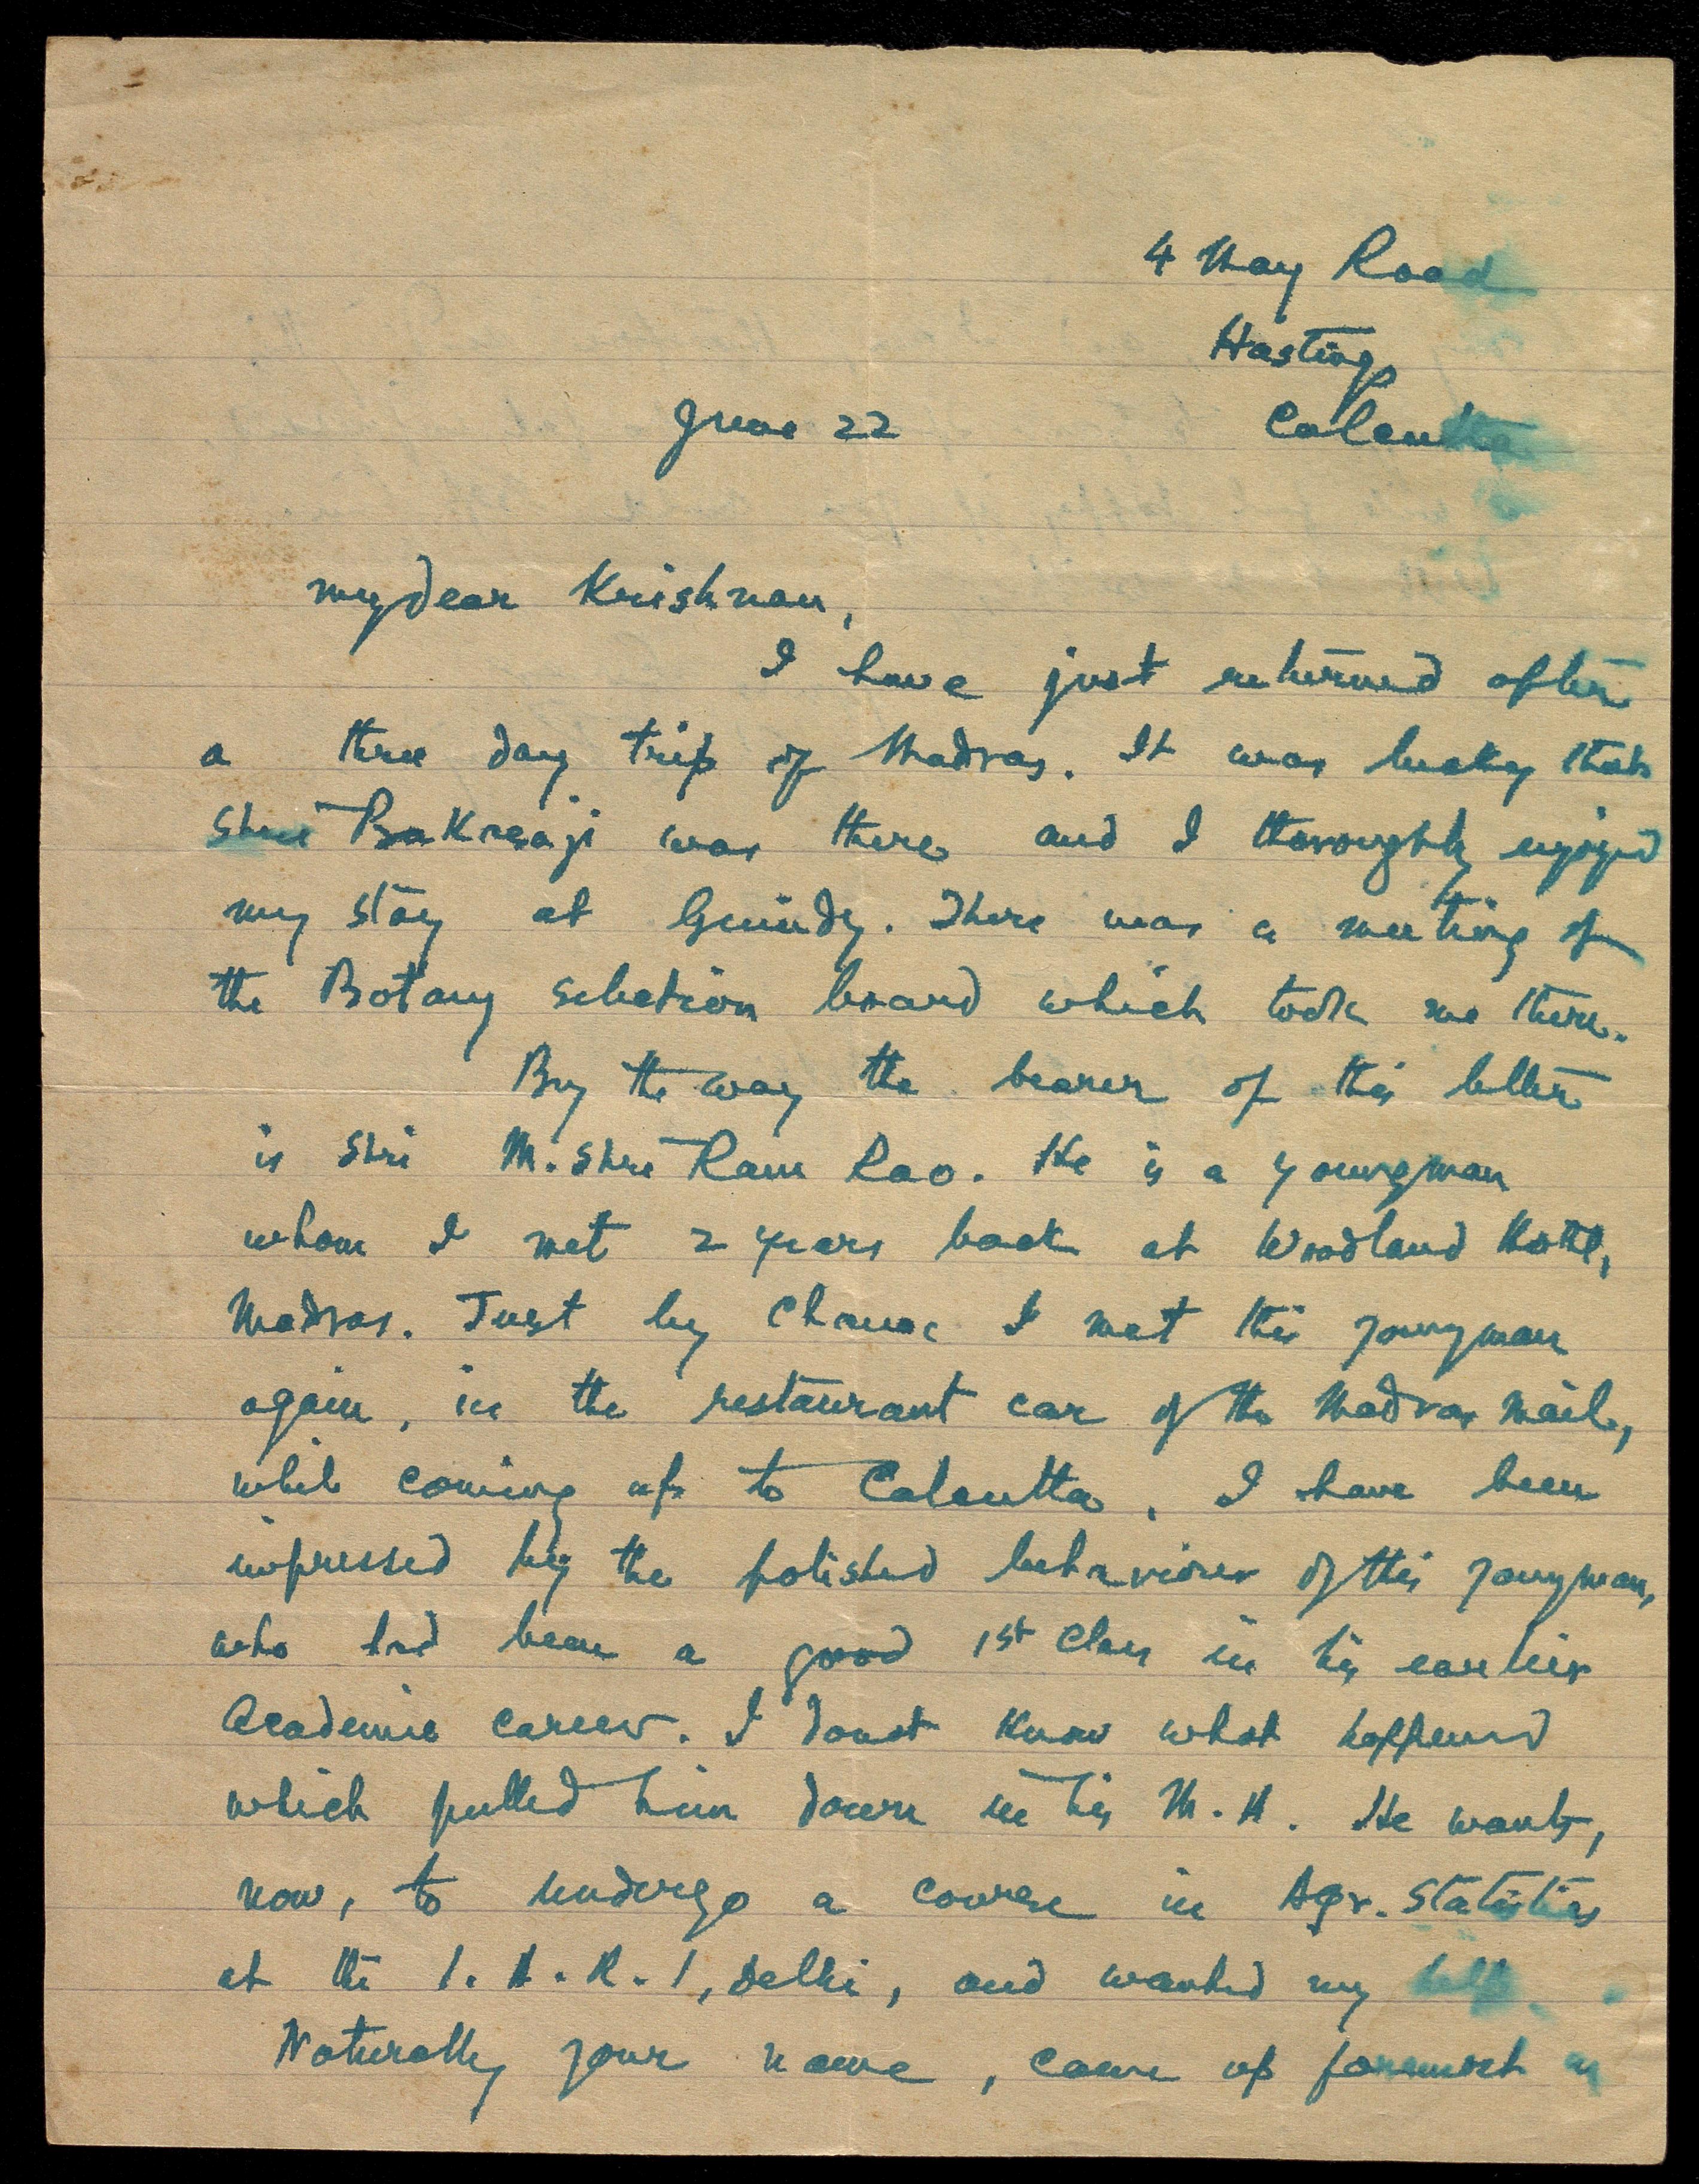 4 May Road
Hastings
Calcutta
June 22
My dear Krishnan,
I have just returned after
a three day trip of Madras. It was lucky that
Shri was there and I thoroughly enjoyed
my stay at Guindy. There was a meeting of
the Botany selection board which took me there.
By the way the bearer of this letter
is Shri M. Shri Ram Rao. He is a youngman
whom I met 2 years back at Woodland Hotel,
Madras. Just by chance I met this youngman
again, in the restaurant car of the Madras Mail,
while coming up to Calcutta. I have been
impressed by the polished behaviour of this youngman,
who had been a good 1st class in his earlier
Academic career. I donot know what happened
which pulled him down in his M.A. He wants,
now, to undergo a course in Agr. Statistics
at the I.A.R.I, Delhi, and wanted my help.
Naturally your name, came up foremost in